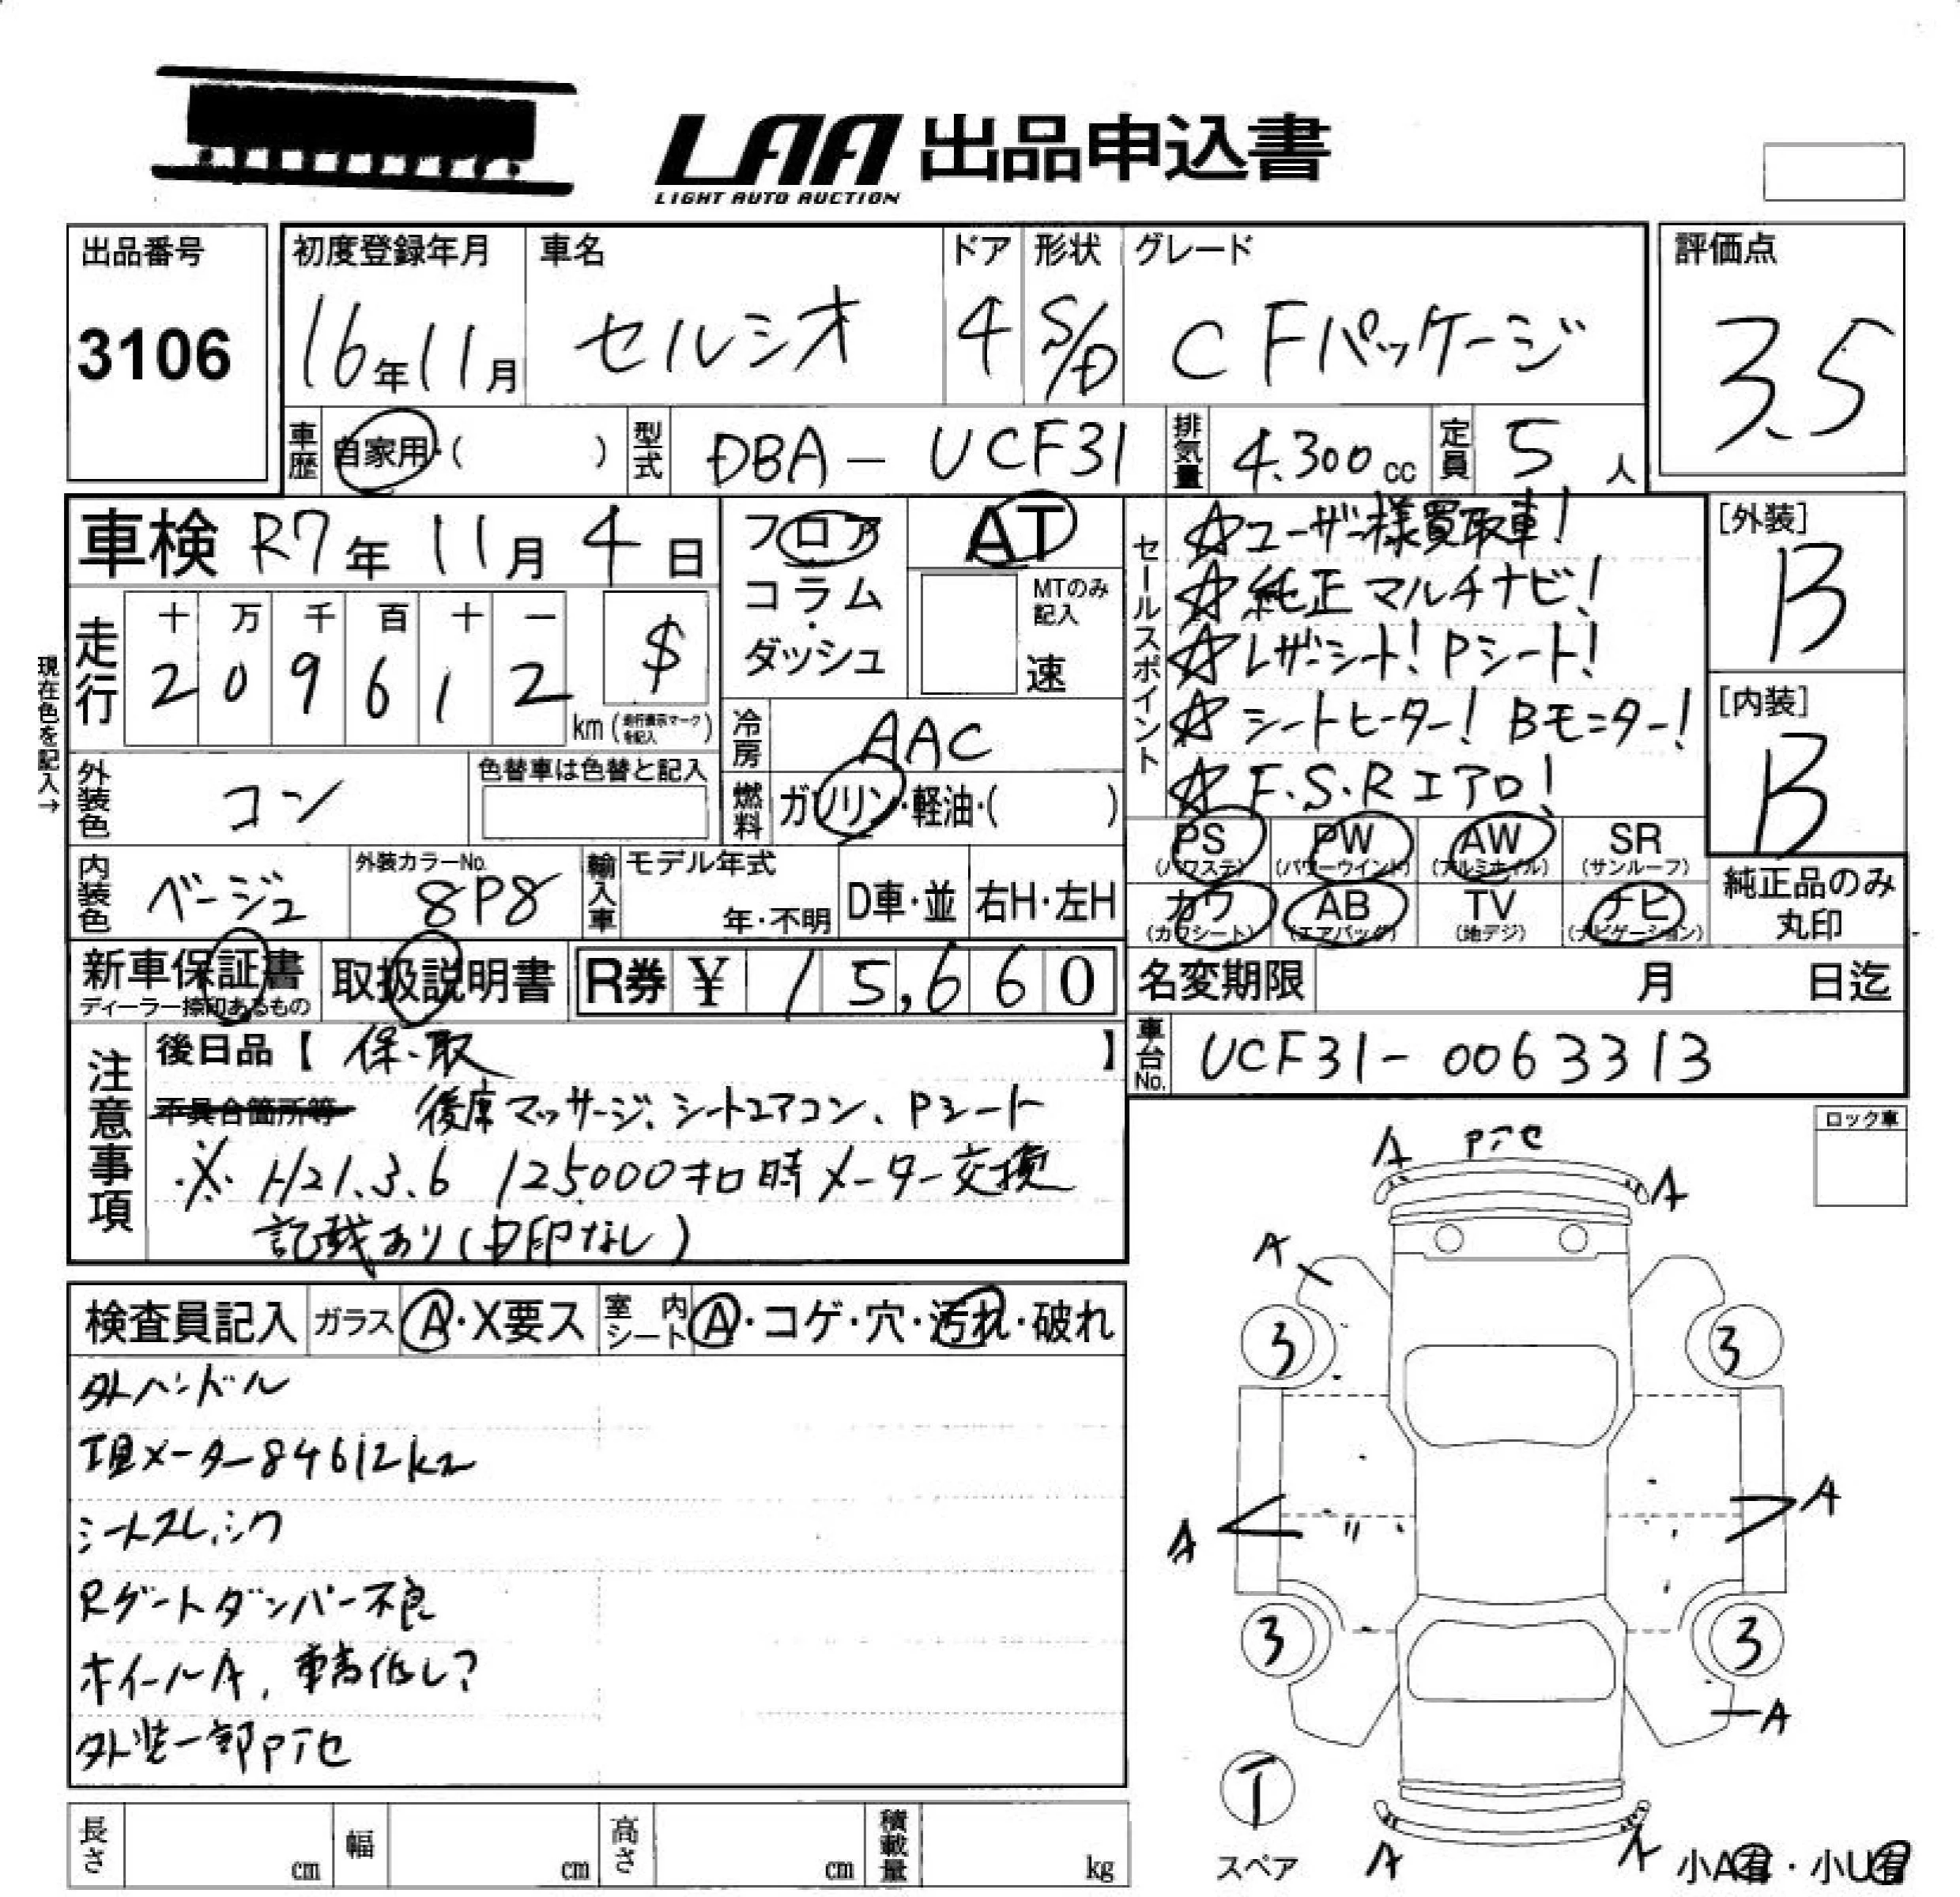 LAA 出品申込書
LIGHT AUTO AUCTION
出品番号
3106
初度登録年月
16年11月
車名
セルシオ
ドア
4
形状
S/D
グレード
C Fパッケージ
評価点
3.5
車歴
自家用・( )
型式
DBA-UCF31
排気量
4.300cc
定員
5人
車検 R7年 11月 4日
走行
十 万 千 百 十 一
2 0 9 6 1 2
$
km(走行表示マークを記入)
現在色を記入→
外装色
コン
色替車は色替と記入
内装色
ベージュ
外装カラーNo.
8P8
輸入車
モデル年式
年・不明
D車・並
右H・左H
フロア
・
コラム
・
ダッシュ
AT
MTのみ記入
速
冷房
AAC
燃料
ガソリン・軽油・( )
セールスポイント
☆ユーザー様買取車!
☆純正マルチナビ!
☆レザーシート!Pシート!
☆シートヒーター!Bモニター!
☆F.S.Rエアロ!
[外装]
B
[内装]
B
PS (パワステ)
PW (パワーウインド)
AW (アルミホイル)
SR (サンルーフ)
カワ (カワシート)
AB (エアバッグ)
TV (地デジ)
ナビ (ナビゲーション)
純正品のみ
丸印
新車保証書
ディーラー捺印あるもの
取扱説明書
R券 ¥ 15,660
名変期限 月 日迄
車台No.
UCF31-0063313
注意事項
後日品【 保、取 】
不具合箇所等 後席マッサージ、シートエアコン、Pシート
※ H21.3.6 125000キロ時メーター交換
記載あり(印なし)
検査員記入
ガラス
A・X要ス
室内シート
A・コゲ・穴・汚れ・破れ
外ハンドル
現メーター84612km
シートスレ、シワ
Rゲートダンパー不良
ホイールA、車高低し?
外装一部Pテセ
ロック車
A Pテセ A
A
3 3
A A
3 3
A
T
スペア
A A
小A有・小U有
長さ cm
幅 cm
高さ cm
積載量 kg